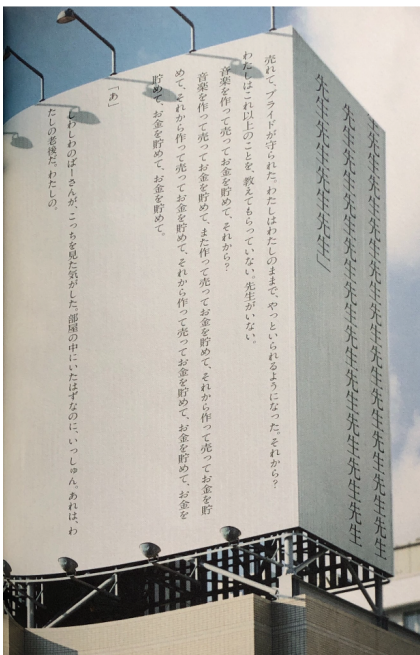 先生先生先生先生先生先生先生先生先生先生先生先生
先生先生先生先生先生先生先生先生先生先生先生先生
先生先生先生先生先生」
売れて、プライドが守られた。わたしはわたしのままで、やっといられるようになった。それから？
わたしはこれ以上のことを、教えてもらっていない。先生がいない。
音楽を作って売ってお金を貯めて、それから？
音楽を作って売ってお金を貯めて、また作って売ってお金を貯めて、それから作って売ってお金を貯
めて、それから作って売ってお金を貯めて、それから作って売ってお金を貯めて、お金を貯めて、お金を
貯めて、お金を貯めて、お金を貯めて。
「あ」
しわしわのばーさんが、こっちを見た気がした。部屋の中にいたはずなのに、いっしゅん。あれは、わ
たしの老後だ。わたしの。